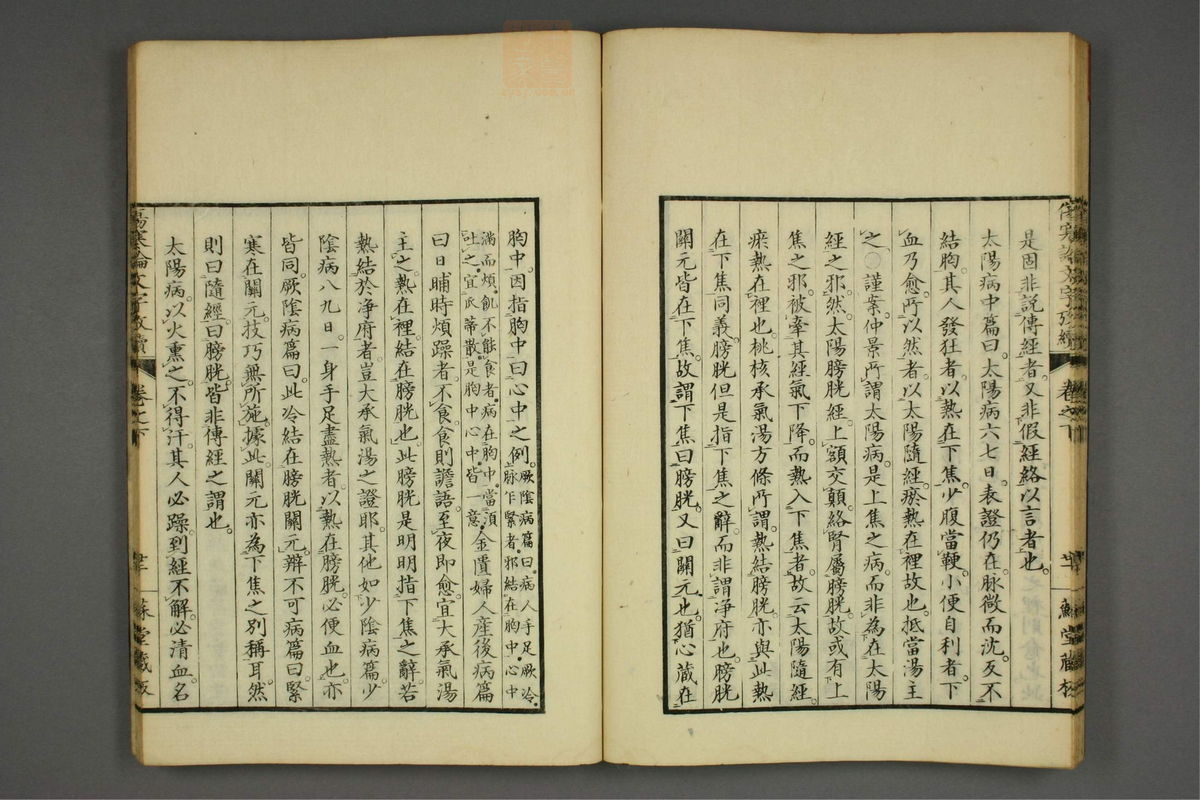 是固非説傳經者又非假經絡以言者也
太陽病中篇曰太陽病六七日表證仍在脉微而沈反不
結胸其人發狂者以熱在下焦少腹當鞕小便自利者下
血乃愈所以然者以太陽隨經瘀熱在裡故也抵當湯主
之○謹案仲景所謂太陽病是上焦之病而非為在太陽
經之邪然太陽膀胱經上額交顛絡腎屬膀胱故或有上
焦之邪被牽其經氣下降而熱入下焦者故云太陽隨經
瘀熱在裡也桃核承氣湯方條所謂熱結膀胱亦與此熱
在下焦同義膀胱但是指下焦之辭而非謂淨府也膀胱
關元皆在下焦故謂下焦曰膀胱又曰關元也猶心藏在
胸中因指胸中曰心中之例厥陰病篇曰病人手足厥冷
脉乍緊者邪結在胸中心中
滿而煩飢不能食者病在胸中當須
吐之宜瓜蒂散是胸中心中皆一意金匱婦人産後病篇
曰日晡時煩躁者不食食則譫語至夜即愈宜大承氣湯
主之熱在裡結在膀胱也此膀胱是明明指下焦之辭若
熱結於淨府者豈大承氣湯之證耶其他如少陰病篇少
陰病八九日一身手足盡熱者以熱在膀胱必便血也亦
皆同厥陰病篇曰此冷結在膀胱關元辨不可病篇曰緊
寒在關元技巧無所施據此關元亦為下焦之別稱耳然
則曰隨經曰膀胱皆非傳經之謂也
太陽病以火熏之不得汗其人必躁到經不解必清血名
傷寒論文字攷續
卷之下